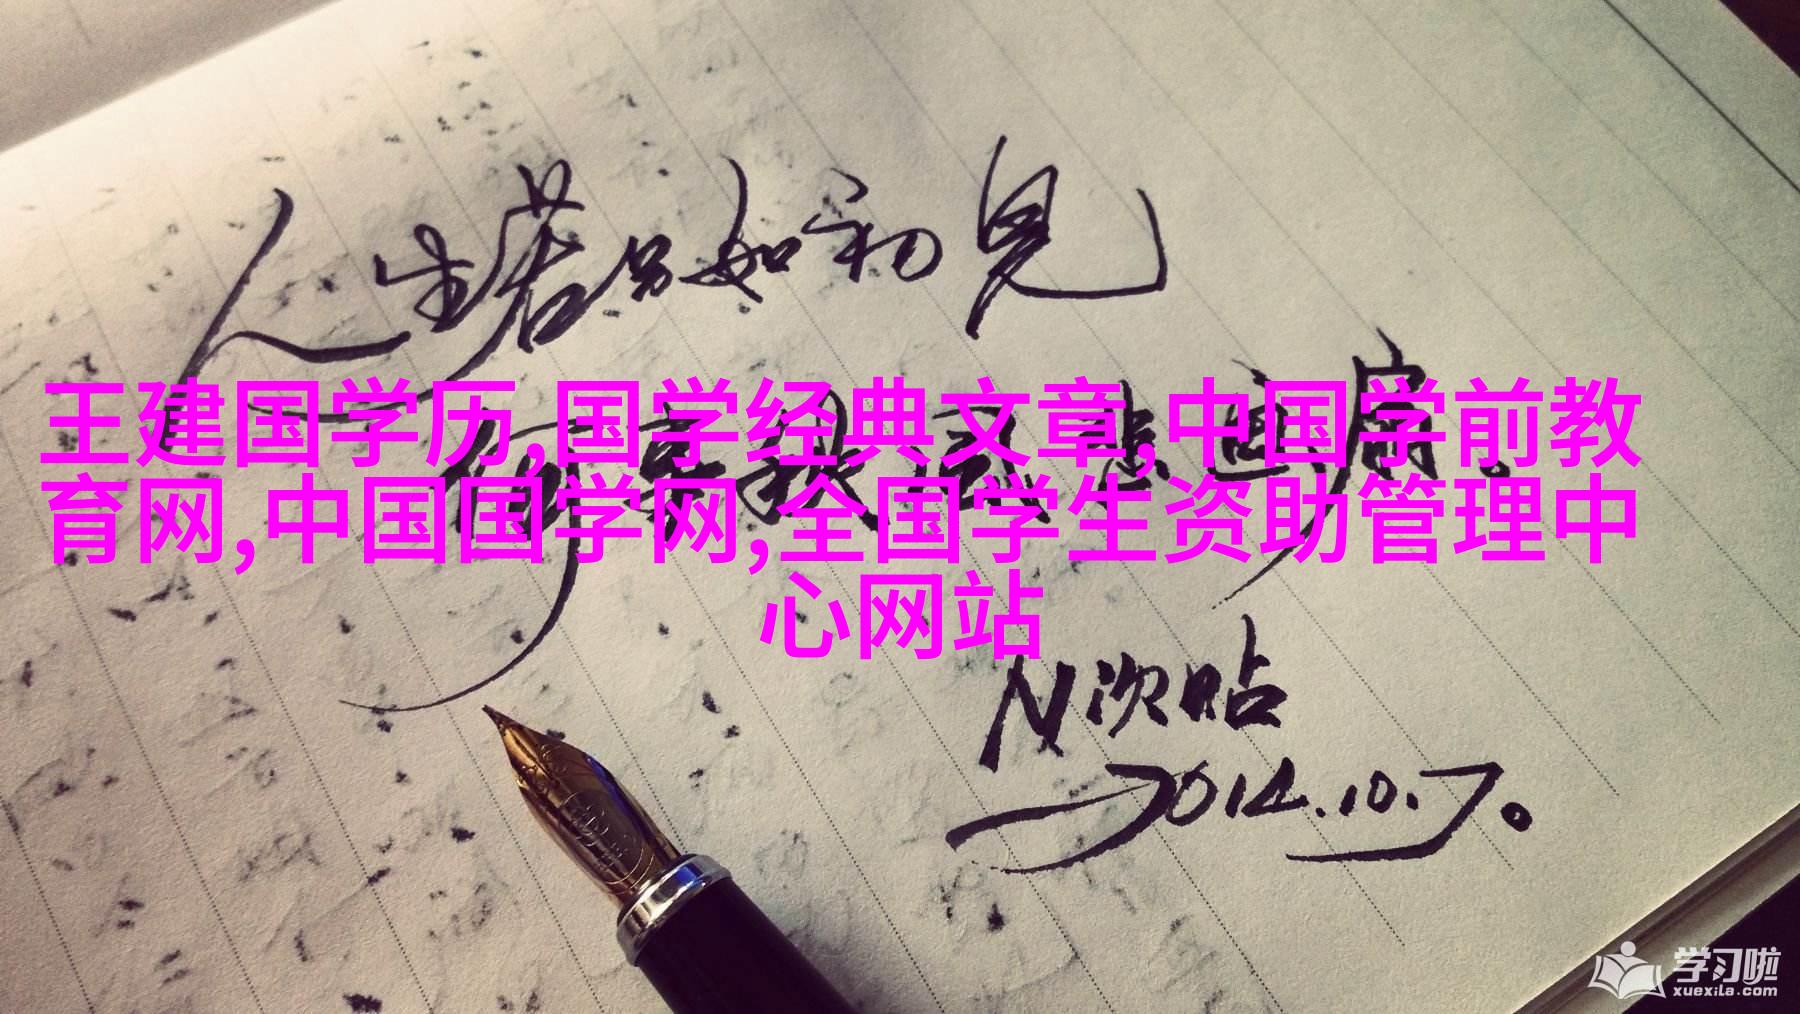 人生若只如初见
何事秋风悲画扇。
王建国学历,国学经典文章,中国学前教
育网,中国国学网,全国学生资助管理中
心网站
N次贴
2014.10.7。
学习啦
xuexila.com